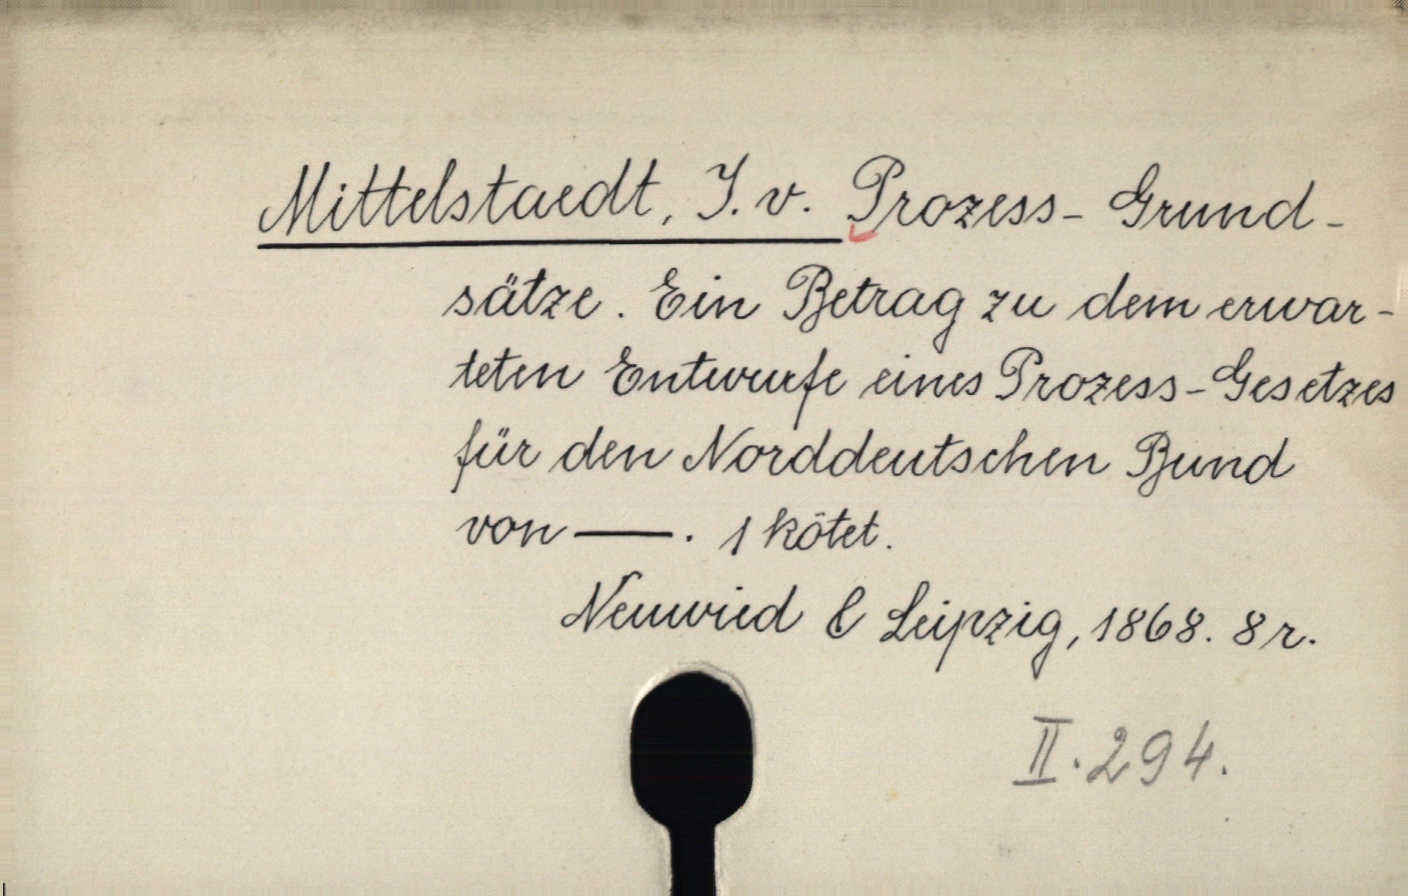 Mittelstaedt, J. v. Prozess- Grund-
sätze. Ein Betrag zu dem erwar-
teten Entwurfe eines Prozess-Gesetzes
für den Norddeutschen Bund
von ——. 1 kötet.
Neuwied & Leipzig, 1868. 8 r.
II. 294.